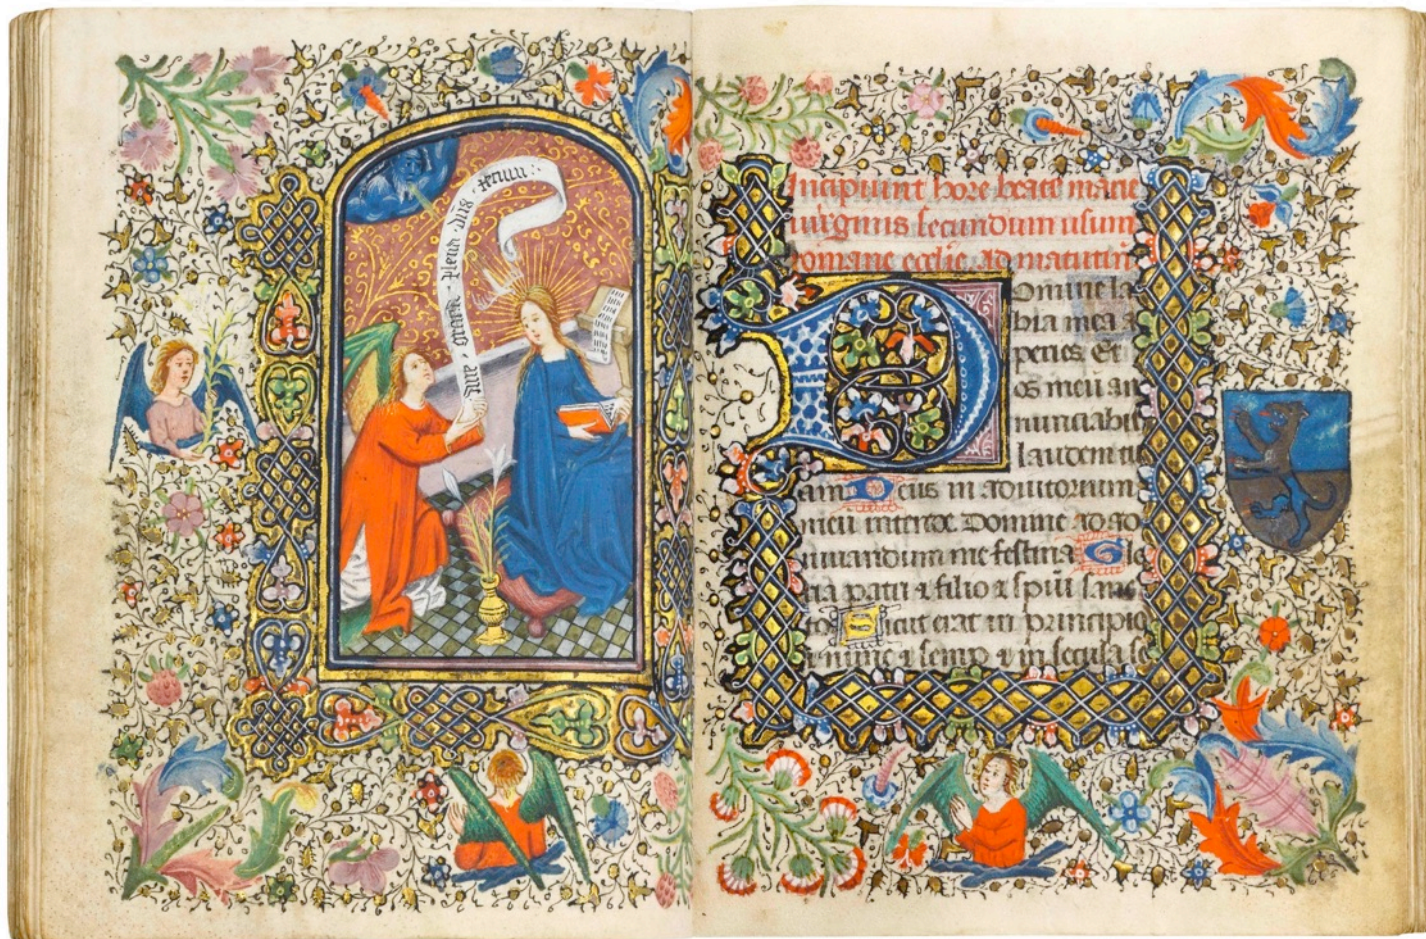 aue · gracia · plena · dns · tecum :
Incipiunt hore beate marie
uirginis secundum usum
romane ecclie. Ad matutin
Domine la
bia mea a
peries. Et
os meū an
nunciabit
laudem tu
am Deus in adiutorium
meū intende. Domine ad ad
iuuandum me festina Glo
ria patri ⁊ filio ⁊ spūi sanc
to Sicut erat in principio
⁊ nunc ⁊ semp ⁊ in secula se